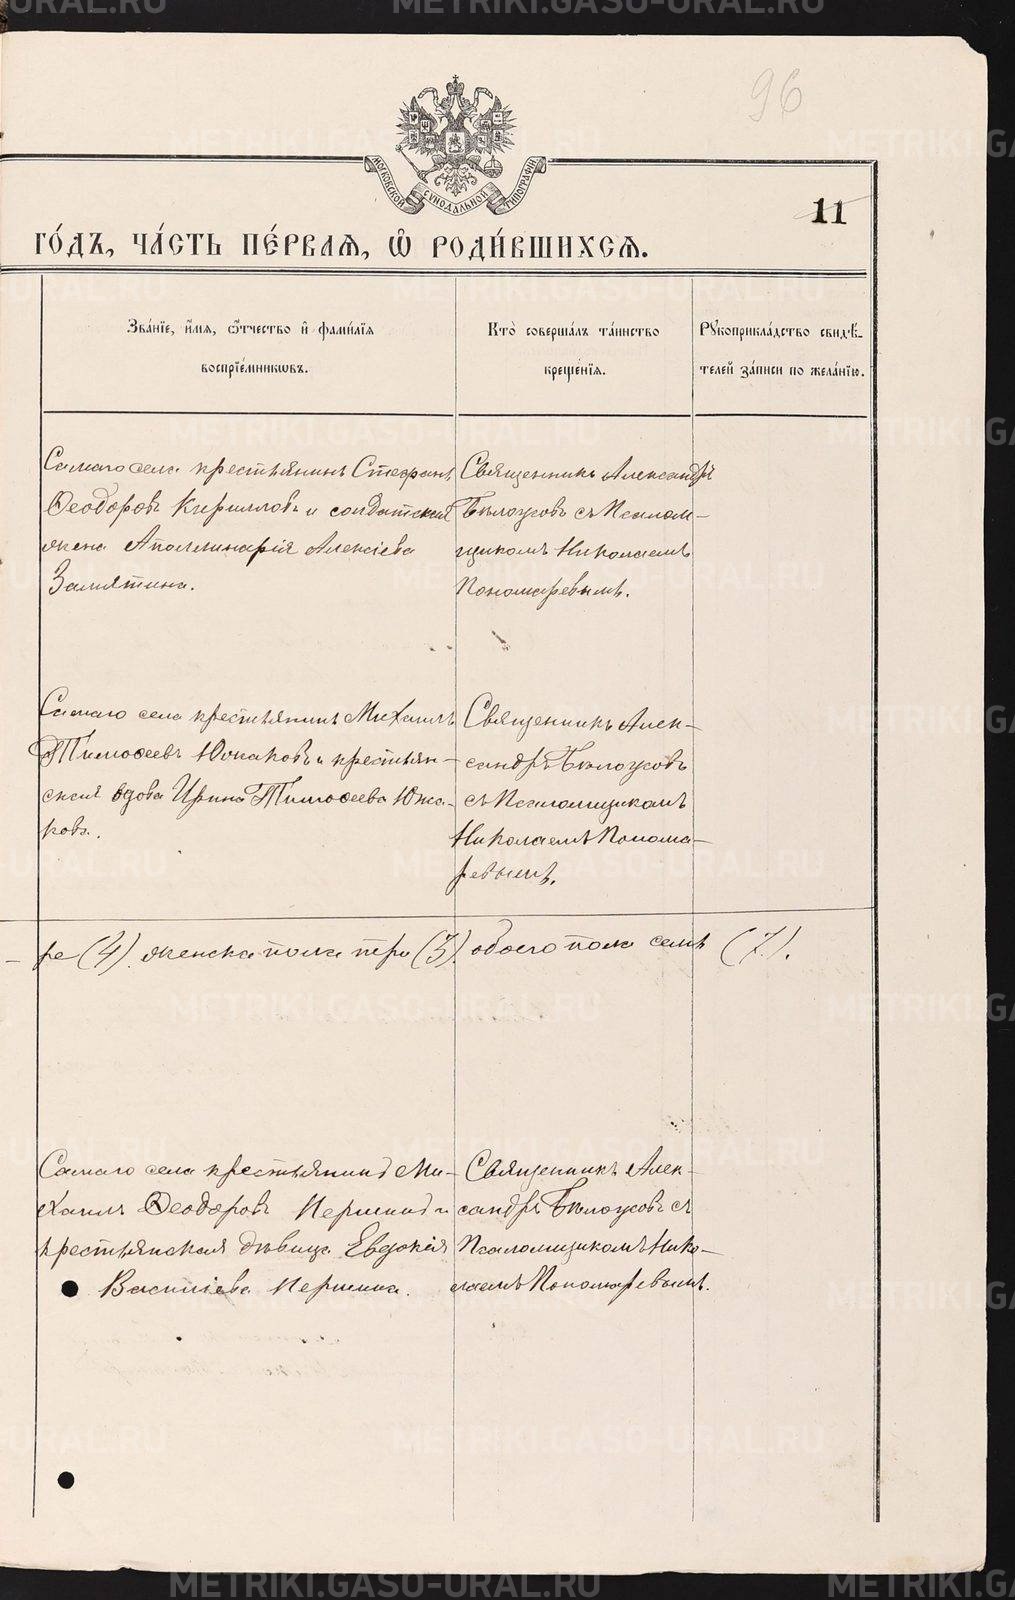 96
МОСКОВСКОЙ СѴНОДАЛЬНОЙ ТИПОГРАФІИ
11
ГО́ДЪ, ЧА́СТЬ ПЕ́РВАѦ, Ѽ РОДИ́ВШИХСѦ.
Зва́нїе, и҆́мѧ, ѻ҆́тчество и҆ фами́лїѧ
воспрїе́мникѡвъ.
Кто̀ соверша́лъ та́инство
креще́нїѧ.
Рꙋкоприкла́дство свидѣ́-
телей за́писи по жела́нїю.
Самаго села крестьянинъ Стефанъ
Ѳеодоровъ Кирилловъ и солдатская
жена Аполлинарія Алексіева
Замятина.
Священникъ Александръ
Бѣлоусовъ съ Псалом-
щикомъ Николаемъ
Пономаревымъ.
Самаго села крестьянинъ Михаилъ
Тимоѳеевъ Южаковъ и крестьян-
ская вдова Ирина Тимоѳеева Южа-
кова.
Священникъ Алек-
сандръ Бѣлоусовъ
съ Псаломщикомъ
Николаемъ Понома-
ревымъ.
ре (4). женска пола три (3). обоего пола семь (7).
Самаго села крестьянинъ Ми-
хаилъ Ѳеодоровъ Першинъ и
крестьянская дѣвица Евдокія
Василіева Першина.
Священникъ Алек-
сандръ Бѣлоусовъ съ
Псаломщикомъ Нико-
лаемъ Пономаревымъ.
METRIKI.GASO-URAL.RU